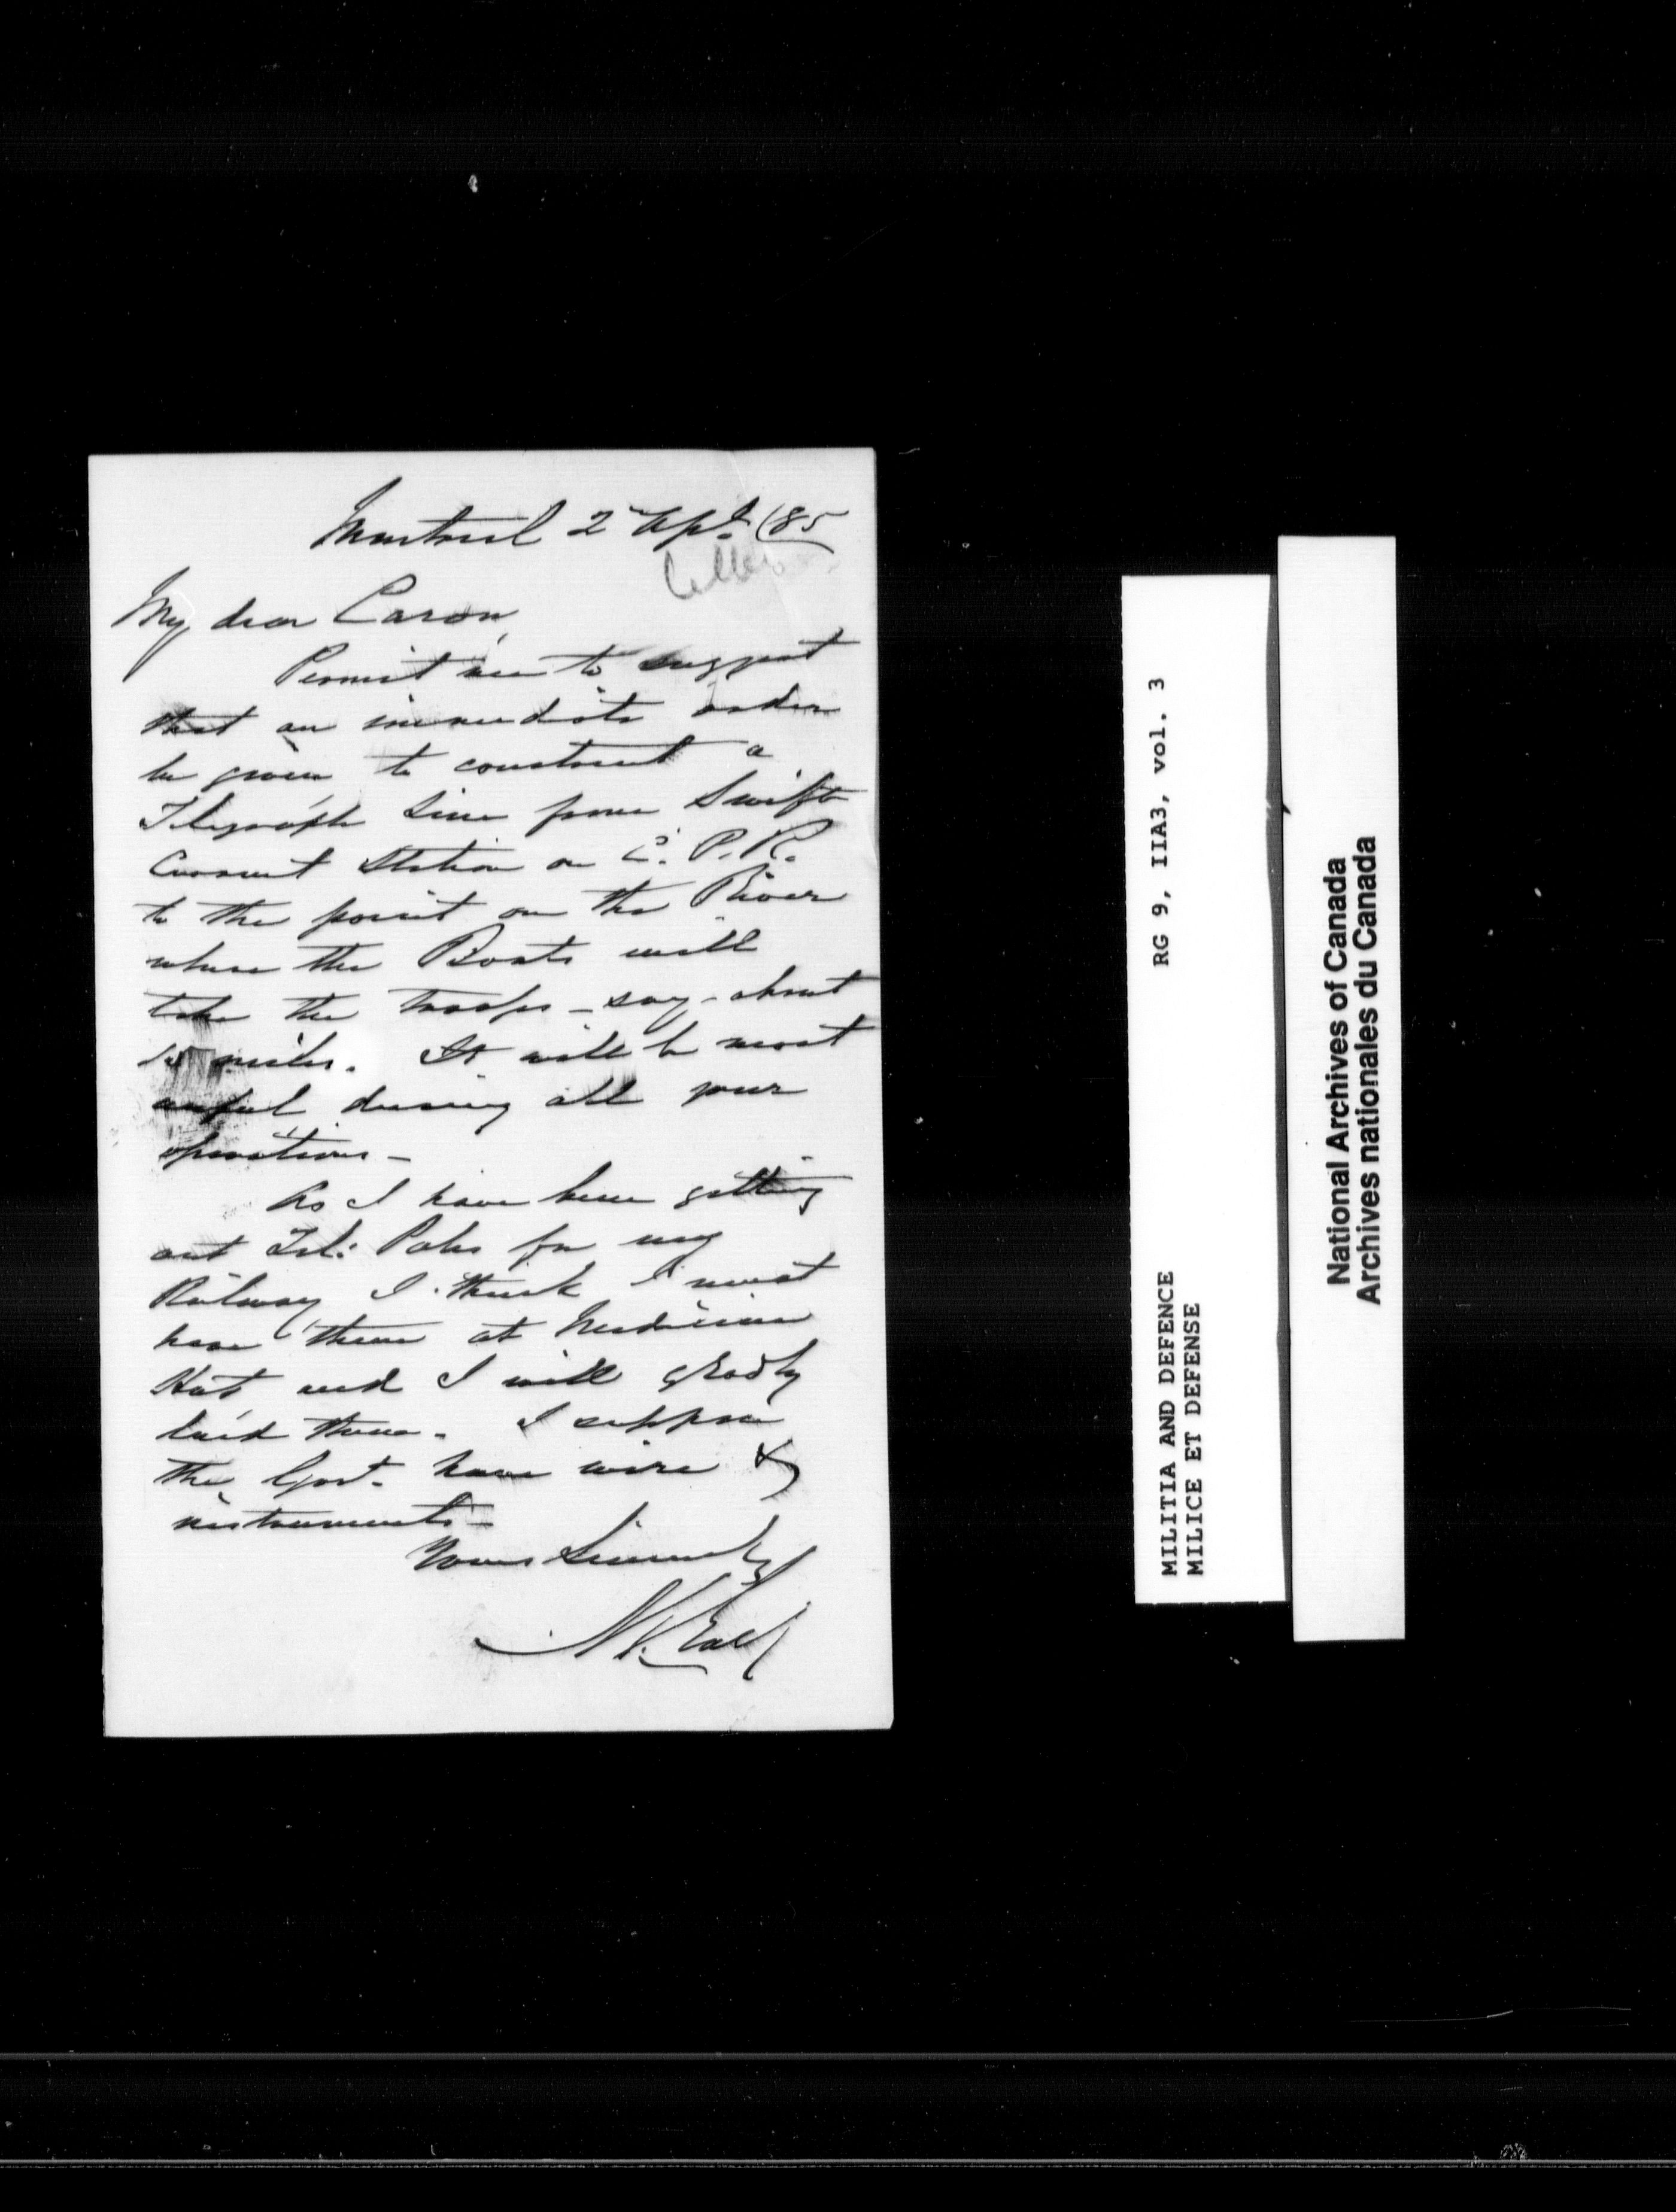 Montreal 2 Apl. /85
My dear Caron,
Permit me to suggest
that an immediate order
be given to construct a
Telegraph Line from Swift
Current Station on C. P. R.
to the point on the River
where the Boats will
take the troops – say – about
miles. It will be most
useful during all your
operations –
As I have been getting
out Tel: Poles for my
Railway I think I must
have them at Medicine
Hat and I will gladly
lend them. I suppose
the Govt. have wire &
instruments –
Yours Sincerely
RG 9, IIA3, vol. 3
MILITIA AND DEFENCE
MILICE ET DEFENSE
National Archives of Canada
Archives nationales du Canada